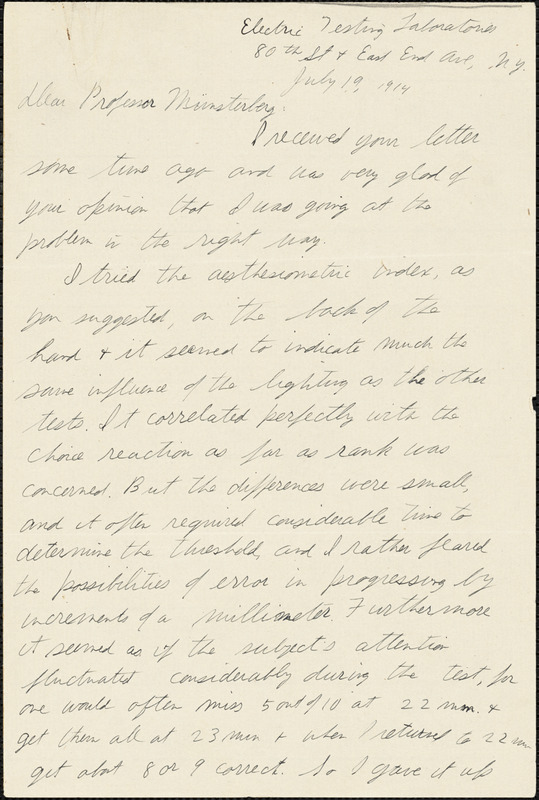 Electric Testing Laboratories
80th St & East End Ave, N.Y.
July 19, 1914
Dear Professor Münsterberg:
I received your letter
some time ago and was very glad of
your opinion that I was going at the
problem in the right way.
I tried the aesthesiometric index, as
you suggested, on the back of the
hand & it seemed to indicate much the
same influence of the lighting as the other
tests. It correlated perfectly with the
choice reaction as far as rank was
concerned. But the differences were small,
and it often required considerable time to
determine the threshold, and I rather feared
the possibilities of error in progressing by
increments of a millimeter. Furthermore
it seemed as if the subject's attention
fluctuated considerably during the test, for
one would often miss 5 out of 10 at 22 mm. &
get them all at 23 mm & when I returned to 22 mm
get about 8 or 9 correct. So I gave it up